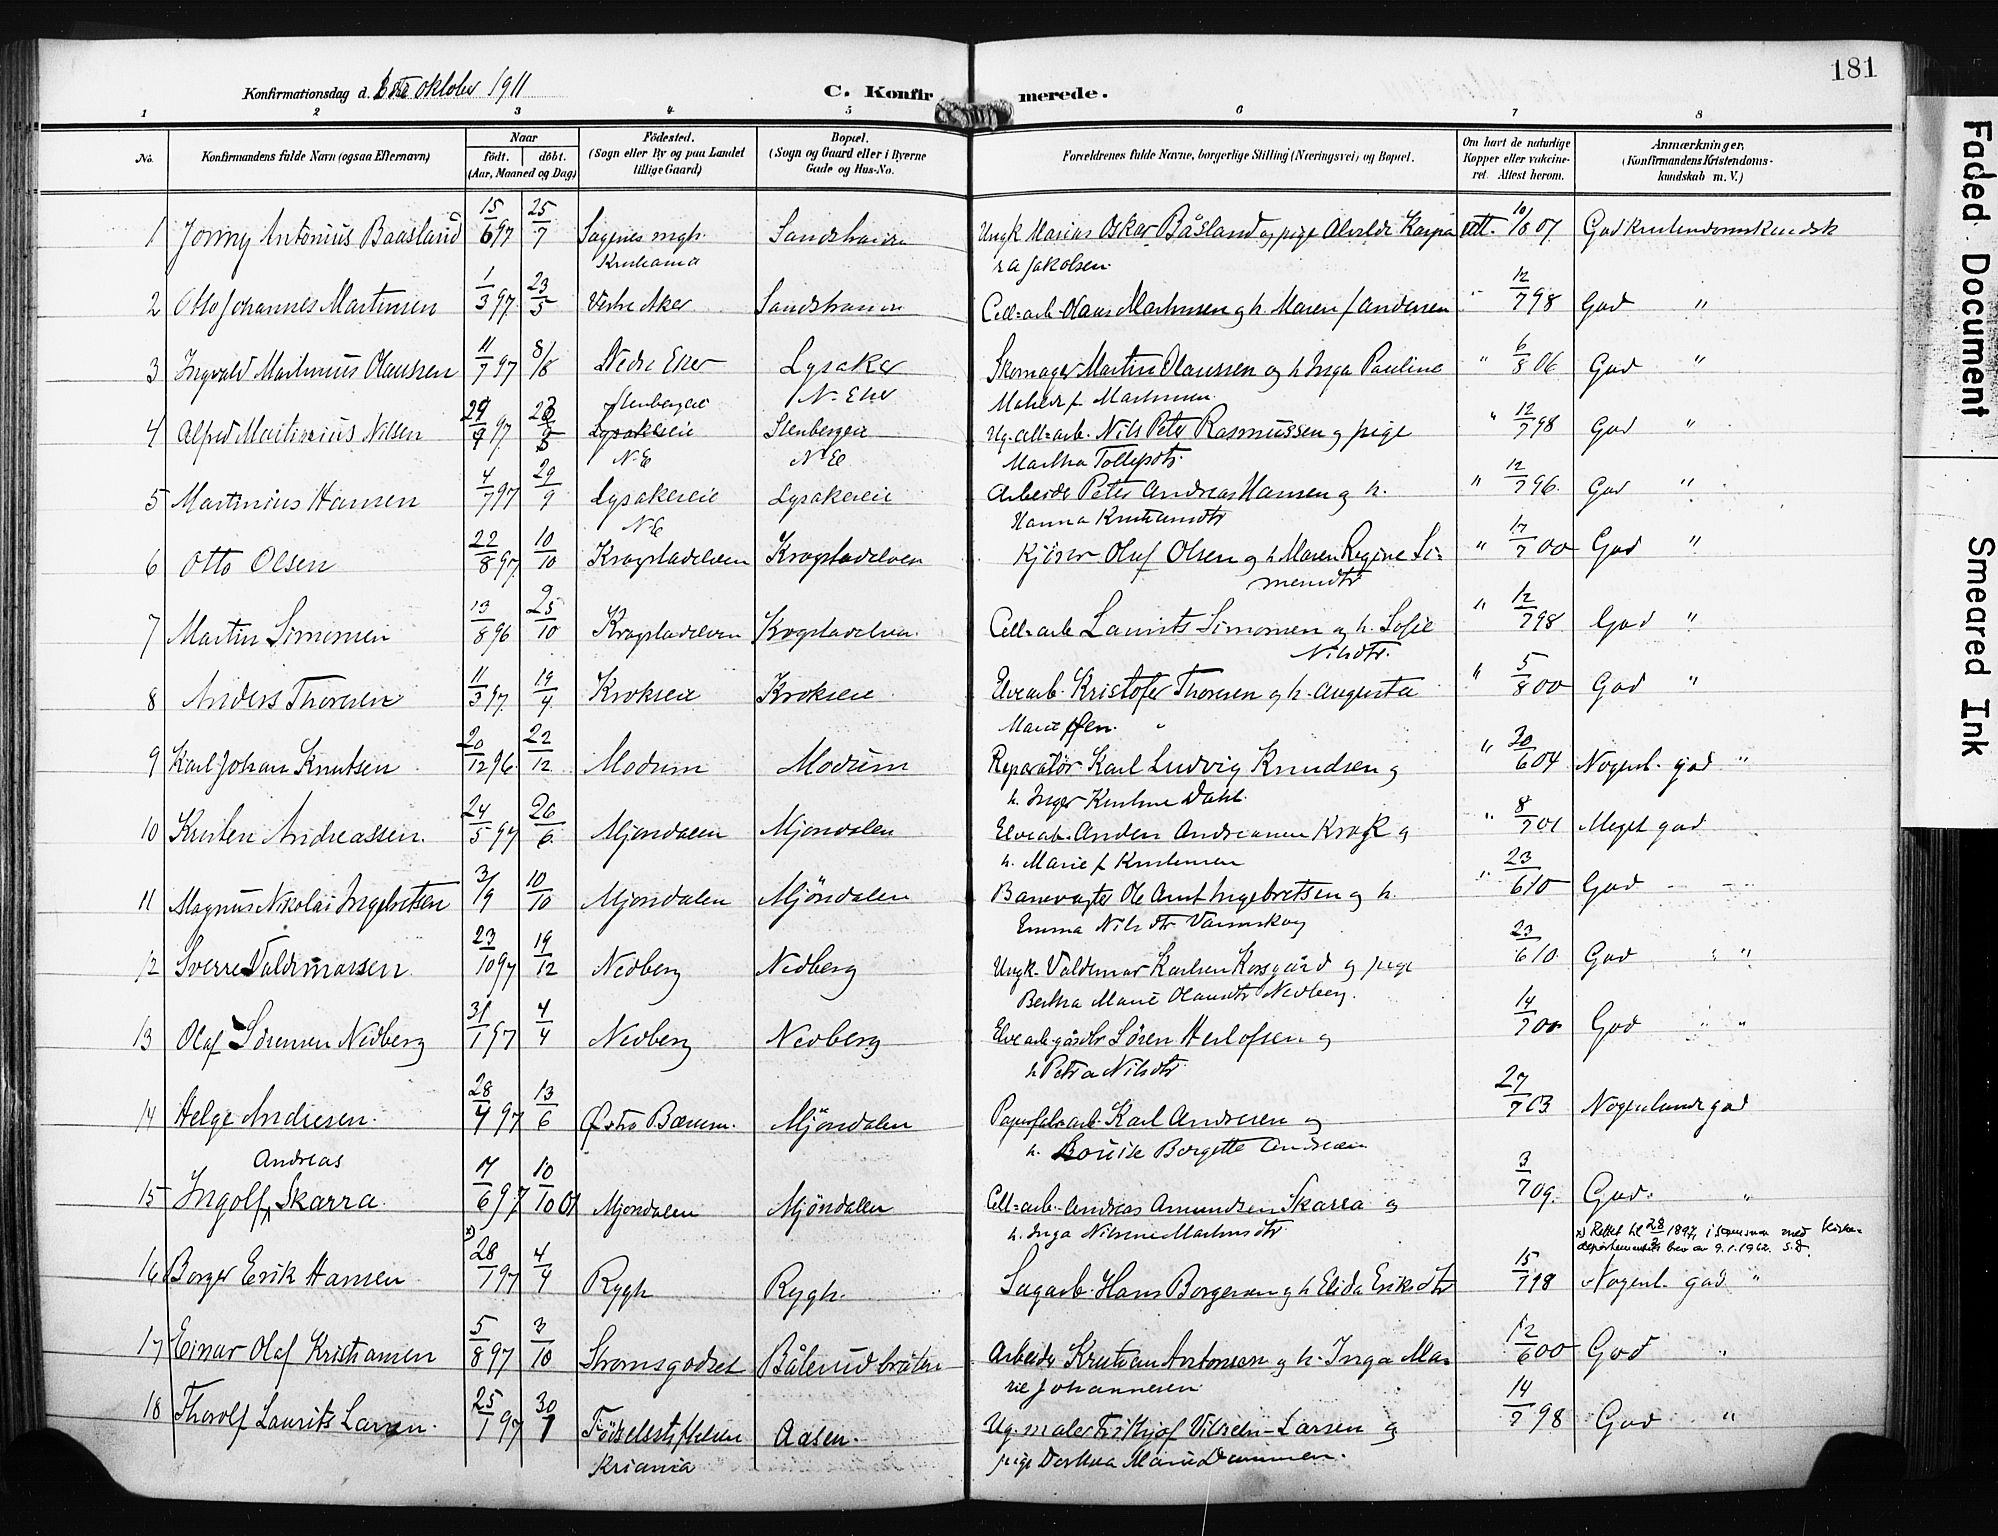 181
Konfirmationsdag d. oktober 1911
C. Konfirmerede.
1 2 3 4 5 6 7 8
No.
Konfirmandens fulde Navn (ogsaa Efternavn)
Naar
født. døbt.
(Aar, Maaned og Dag)
Fødested.
(Sogn eller By og paa Landet
tillige Gaard)
Bopæl.
(Sogn og Gaard eller i Byerne
Gade og Hus-No.
Forældrenes fulde Navne, borgerlige Stilling (Næringsvei) og Bopæl.
Om havt de naturlige
Kopper eller vakcine-
ret. Attest herom.
Anmærkninger.
(Konfirmandens Kristendoms-
kundskab m. V.)
1 Jonny Antonius Baasland 15/6 97 25/7 Sagenes mgh. Sandstranden Ungk Marius Oskar Båsland og pige Alvilde Kaspa att. 10/8 07 God kristendomskundsk
Kristiania ra Jakobsen.
2 Otto Johannes Martinsen 1/3 97 23/5 Vestre Aker Sandstranden Cell=arb. Olaus Martinsen og h. Maren f Andersen " 12/7 98 God "
3 Ingvald Martinius Olaussen 11/7 97 8/8 Nedre Eker Lysaker Skomager Martin Olaussen og h Inga Pauline " 6/8 06 God "
N. Eker Mathilde f. Martinsen.
Stenbergeie
4 Alfred Martinius Nilsen 97 Lysakereie Stenbergeie Ug. cell=arb. Nils Peter Rasmussen og pige " 12/7 98 God "
N.E N.E Martha Tollefsdtr.
5 Martinius Hansen 4/7 97 29/9 Lysakereie Lysakereie Arbeider Peter Andreas Hansen og h. " 12/7 96. God "
N.E Hanna Kristiansdtr
6 Otto Olsen 22/8 97 10/10 Krogstadelven Krogstadelven Kjører Oluf Olsen og h Maren Regine Si= " 17/7 00 God "
mensdtr
7 Martin Simonsen 13/8 96 25/10 Krogstadelven Krogstadelven. Cell=arb Laurits Simonsen og h. Sofie " 12/7 98 God "
Nilsdtr.
8 Anders Thoresen 11/3 97. 19/4 Krokseie Krokseie Elvearb. Kristofer Thoresen og h. Augusta " 5/8 00 God "
Marie Øen.
9 Karl Johan Knutsen 20/12 96 22/12 Modum Modum Reparatør Karl Ludvig Knudsen og " 30/6 04 Nogenl. god "
h. Inger Kristine Dahl.
10 Kristen Andreassen. 24/5 97 26/6 Mjøndalen Mjøndalen Elvearb. Anders Andreassen Krogk og " 8/7 01 Meget god
h. Marie f Kristensen
11 Magnus Nikolai Ingebretsen 3/9 10/10 Mjøndalen Mjøndalen Banevogter Ole Arnt Ingebretsen og h. " 23/6 10 God
Emma Nilsdtr
12 Sverre Valdemarsen 23/10 97 19/12 Nedberg Nedberg Ungk. Valdemar Karlsen Korsgård og pige 23/6 10 God " "
Bertha Marie Olausdtr Nedberg.
13 Olaf Sørensen Nedberg 31/1 97 4/4 Nedberg Nedberg Elvearb. gårdbr Søren Herlofsen og 14/7 00 God " "
h Petra Nilsdtr
14 Helge Andresen. 28/4 97 13/6 Østre Bærum. Mjøndalen Papirfab.arb. Karl Andresen og 27/7 03 Nogenlunde god
h. Louise Borgette Andresen
Andreas
15 Ingolf Skarra. 17/6 97 10/10 01 Mjøndalen Mjøndalen Cell=arb. Andreas Amundsen Skarra og 3/7 09. God. "
h. Inga Nilsine Martinsdtr
x) Rettet til 28/ 1897, i samsvar med Kirke-
departementets brev av 9.1.1962. S.D.
16 Borger Erik Hansen x) 28/1 97 4/4 Rygh Rygh. Sagarb. Hans Borgersen og h Elida Eriksdtr 15/7 98 Nogenl. god "
17 Einar Olaf Kristiansen 5/8 97 3/10 Strømsgodset Bålerudbråten Arbeider Kristian Antonsen og h. Inga Ma= 12/6 00 God "
rie Johannesen
18 Thorolf Laurits Larsen. 25/1 97 30/ Fødselsstiftelsen Aasen. Ug. maler Fritjof Vilhelm Larsen og 14/7 98 God "
Kriania pige Dorthea Marie Dammen.
Faded Document
Smeared Ink